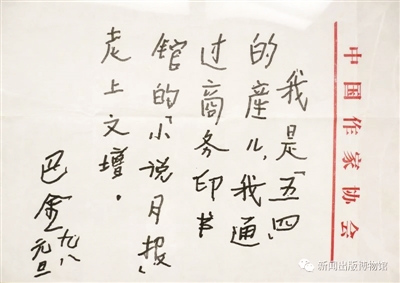 中国作家协会
我是「五四」
的産儿,我通
过商务印书
馆的「小说月报」
走上文壇。
巴金
一九八
元旦
新闻出版博物馆